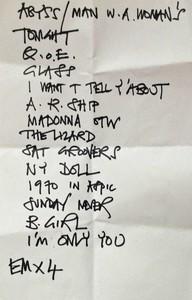 ABYSS / MAN W.A. WOMAN'S
TONIGHT
Q.O.E.
GLASS
I WANT T TELL Y'ABOUT
A. R. SHIP
MADONNA OTW
THE LIZARD
SAT GROOVERS
NY DOLL
1970 IN ASPIC
SUNDAY NEVER
B. GIRL
I'M ONLY YOU
EM X 4